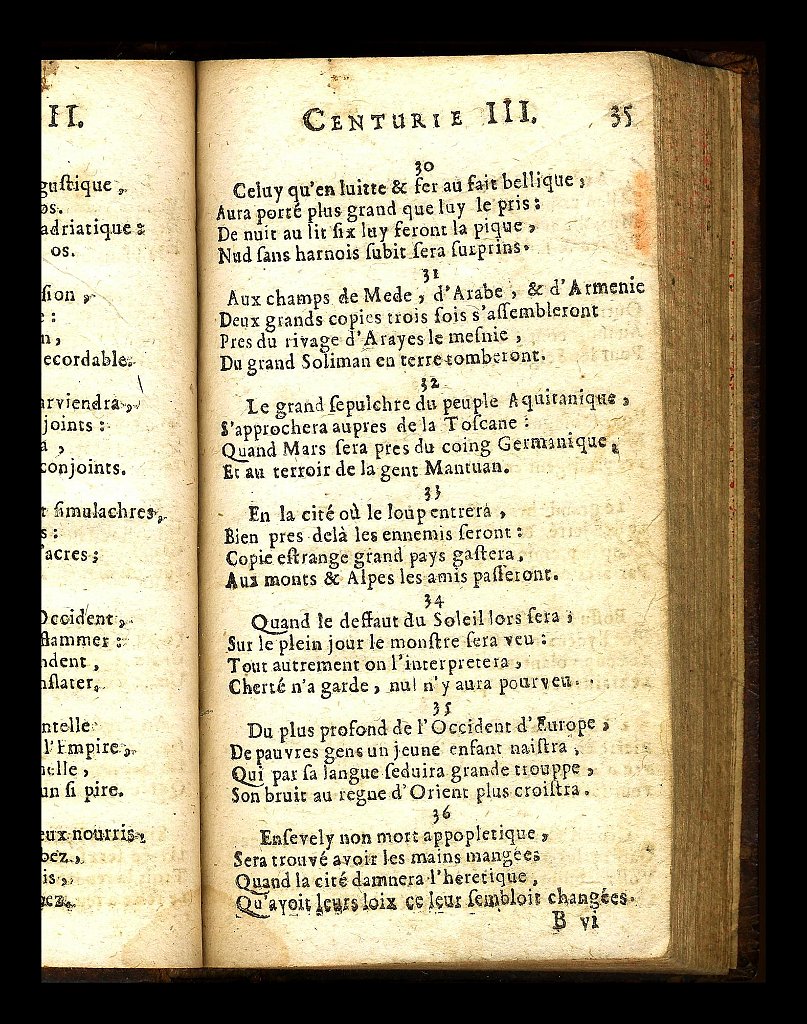 II.
gustique,
os.
adriatique:
os.
sion,
e:
n,
ecordable.
arviendra,
joints:
a,
conjoints.
t simulachres,
s:
'acres;
Occident,
flammer:
ndent,
nslater,
ntelle
l'Empire,
nelle,
un si pire.
eux nourris,
bez,
is,
gez.
CENTURIE III. 35
30
Celuy qu'en luitte & fer au fait bellique,
Aura porté plus grand que luy le pris:
De nuit au lit six luy feront la pique,
Nud sans harnois subit sera surprins.
31
Aux champs de Mede, d'Arabe, & d'Armenie
Deux grands copies trois fois s'assembleront
Pres du rivage d'Arayes le mesnie,
Du grand Soliman en terre tomberont.
32
Le grand sepulchre du peuple Aquitanique,
S'approchera aupres de la Toscane:
Quand Mars sera pres du coing Germanique,
Et au terroir de la gent Mantuan.
33
En la cité où le loup entrera,
Bien pres delà les ennemis seront:
Copie estrange grand pays gastera,
Aux monts & Alpes les amis passeront.
34
Quand le deffaut du Soleil lors sera;
Sur le plein jour le monstre sera veu:
Tout autrement on l'interpretera,
Cherté n'a garde, nul n'y aura pourveu.
35
Du plus profond de l'Occident d'Europe,
De pauvres gens un jeune enfant naistra,
Qui par sa langue seduira grande trouppe,
Son bruit au regne d'Orient plus croistra.
36
Ensevely non mort appopletique,
Sera trouvé avoir les mains mangées
Quand la cité damnera l'heretique,
Qu'avoit leurs loix ce leur sembloit changées.
B vi